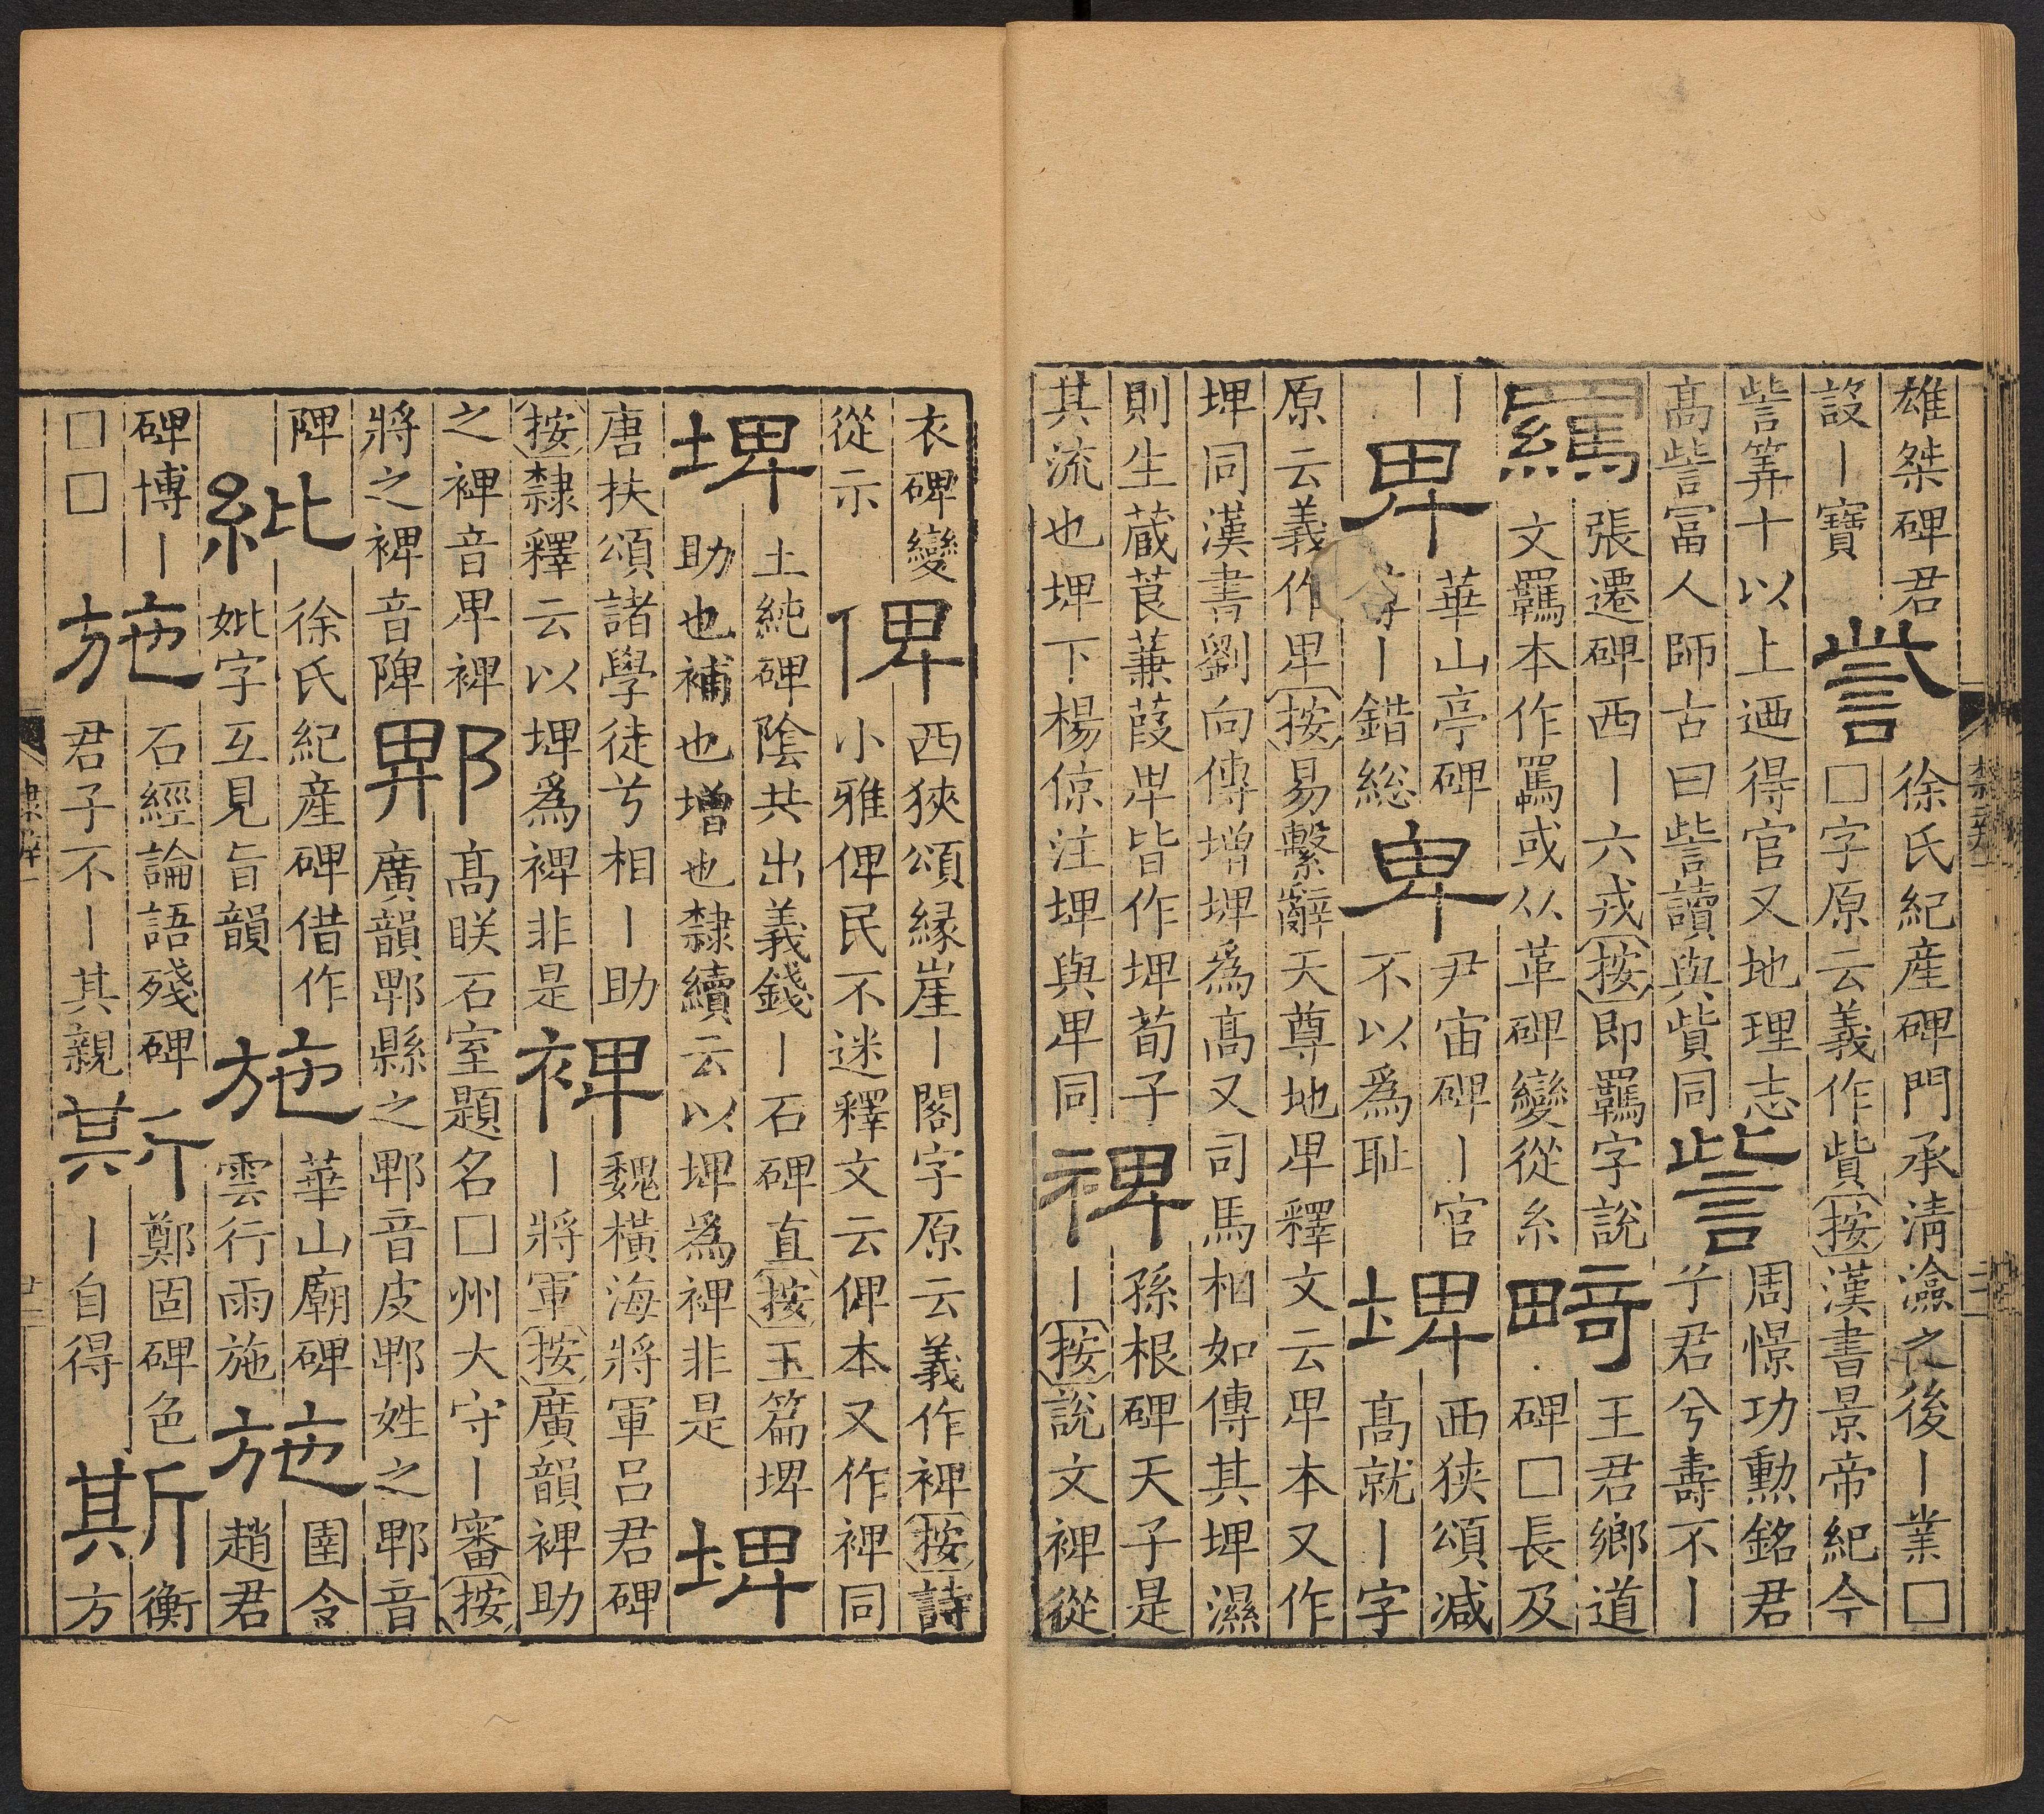 雄桀碑君
設丨寶
訾
徐氏紀産碑門承清瀲之後丨業□
□字原云義作貲按漢書景帝紀今
訾筭十以上迺得官又地理志
高訾富人師古曰訾讀與貲同
訾
周憬功勲銘君
君兮壽不丨
羈
張遷碑西丨六戎按即羈字說
文羈本作罵或从革碑變從糸
畸
王君鄉道
碑□長及
丨
卑
華山亭碑
丨錯総
卑
尹宙碑丨官
不以爲耻
埤
西狭頌减
高就丨字
原云義作卑按易繫辭天尊地卑釋文云卑本又作
埤同漢書劉向傳増埤爲高又司馬相如傳其埤濕
則生蔵莨蒹葭卑皆作埤荀子
其流也埤下楊倞注埤與卑同
裨
孫根碑天子是
丨按說文裨從
衣碑變
從示
俾
西狹頌縁崖丨閣字原云義作裨按詩
小雅俾民不迷釋文云俾本又作裨同
埤
土純碑隂共出義錢丨石碑直按玉篇埤
助也補也增也隸續云以埤爲裨非是
埤
唐扶頌諸學徒兮相丨助
按隸釋云以埤爲裨非是
裨
魏橫海將軍呂君碑
丨將軍按廣韻裨助
之裨音卑裨
將之裨音陴
郫
高眹石室題名□州大守丨審按
廣韻郫縣之郫音皮郫姓之郫音
陴
紕
徐氏紀産碑借作
妣字互見旨韻
施
華山廟碑
雲行雨施
施
圉令
趙君
碑博丨
□□
施
石經論語殘碑
君子不丨其親
斯
鄭固碑色
丨自得
斯
衡
方